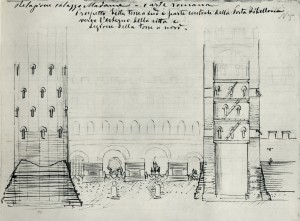 Relazione palazzo Madama - Parte romana
Prospetto della torre sud e parte centrale della porta Fibellona
verso l'esterno della città e
sezione della torre nord.
N. 5